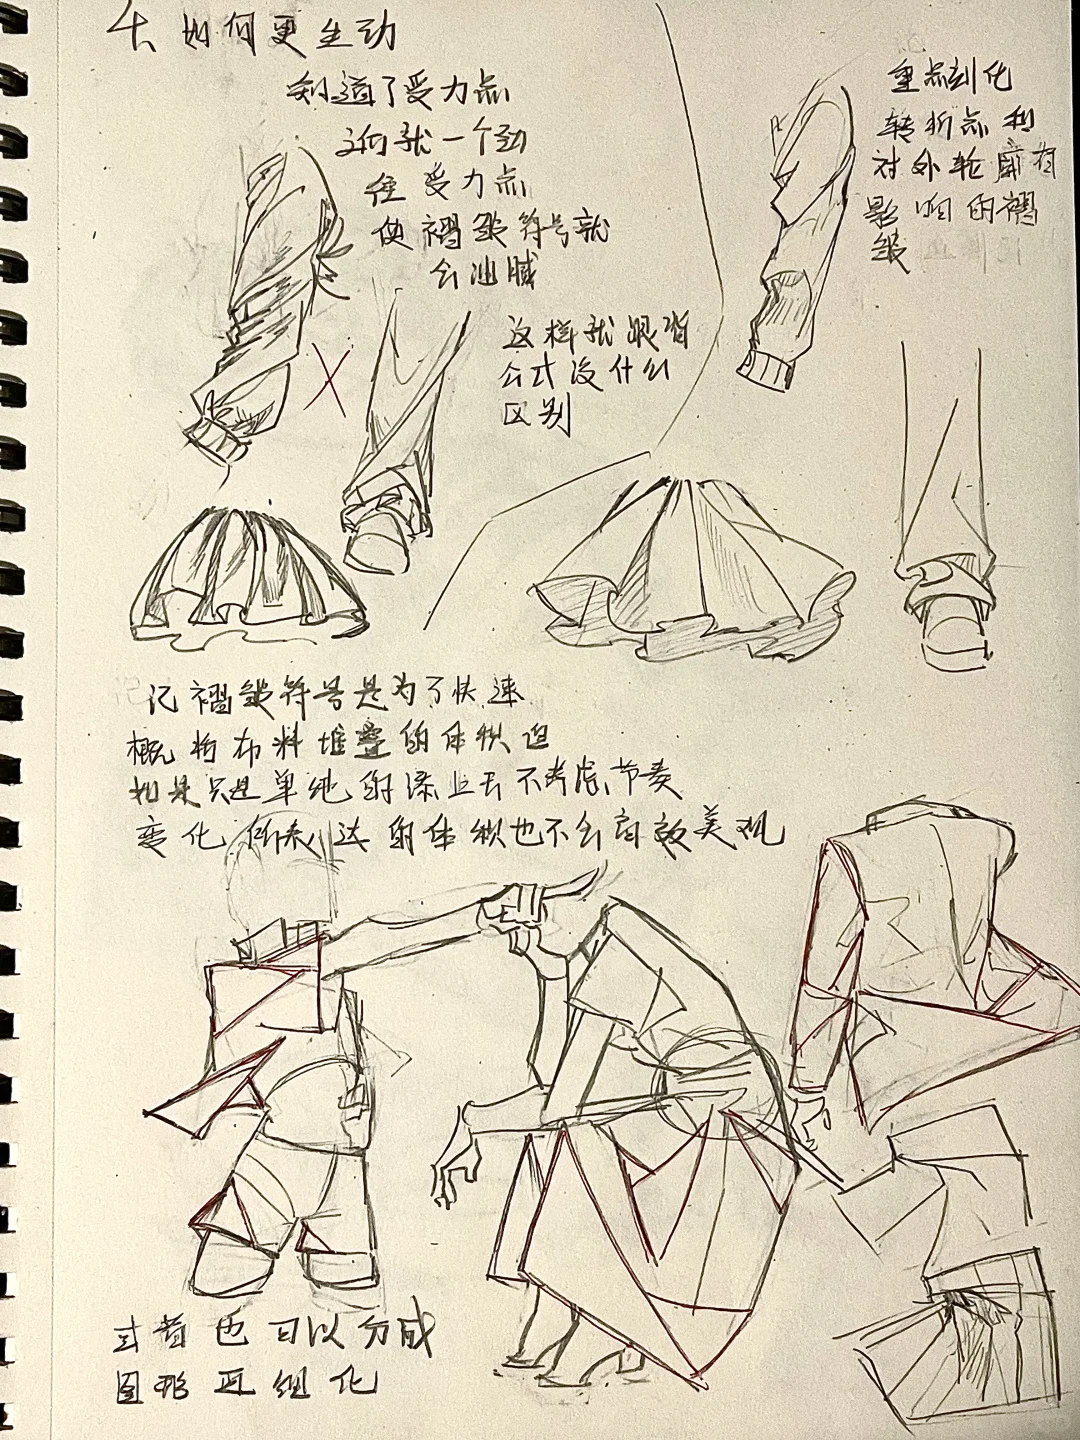 4、如何更生动
知道了受力点
就一个劲
往受力点
使褶皱符号就
会油腻
这样就跟背
公式没什么
区别
重点刻化
转折点和
对外轮廓有
影响的褶
皱
记褶皱符号是为了快速
概括布料堆叠的体积但
如是只是单纯的添上去不考虑节奏
变化所表达的体积也不会有啥美观
或者也可以分成
图形再细化